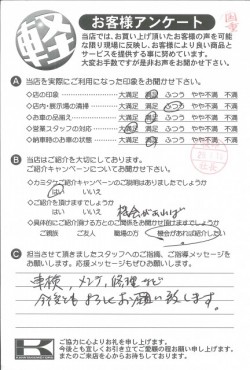 軽
お客様アンケート
当店では、お買い上げ頂いたお客様の声を可能
な限り現場に反映し、お客様により良い商品と
サービスを提供する事に努めています。
大変お手数ですが是非お声をお聞かせ下さい。
A 当店を実際にご利用になった印象をお聞かせ下さい。
◇店の印象 大満足 満足 ふつう やや不満 不満
◇店内・展示場の清掃 大満足 満足 ふつう やや不満 不満
◇お車の品揃え 大満足 満足 ふつう やや不満 不満
◇営業スタッフの対応 大満足 満足 ふつう やや不満 不満
◇納車時のお車の状態 大満足 満足 ふつう やや不満 不満
B 当店はご紹介を大切にしております。
ご紹介キャンペーンについてお聞かせ下さい
◇カミタケご紹介キャンペーンのご説明はありましたでしょうか
はい いいえ
◇ご紹介を頂けますでしょうか
はい いいえ 機会があれば
◇具体的にご紹介頂ける方とのご関係をお聞かせ頂けますでしょうか
ご親族 ご友人 職場の方 機会があれば紹介したい
C 担当させて頂きましたスタッフへのご指摘、ご指導メッセージを
お願いします。応援メッセージもぜひお願いします。
車検、メンテ、修理など
今後ともよろしくお願い致します。
K
ご協力に心よりお礼を申し上げます。
今後とも宜しくお引き立てご愛顧の程お願い申し上げます。
またのご来店を心からお待ちしております。